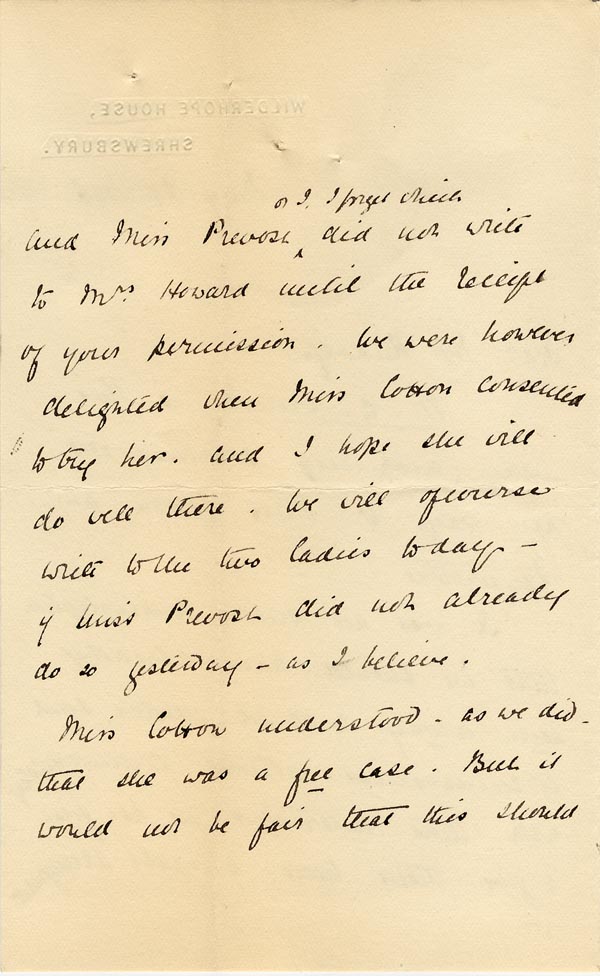 WILDERHOPE HOUSE,
SHREWSBURY.
or I, I forget which
and Miss Prevost ‸ did not write
to Mrs Howard until the receipt
of your permission. We were however
delighted when Miss Cotton consented
to try her. and I hope she will
do well there. We will of course
write to the two ladies today –
if Miss Prevost did not already
do so yesterday – as I believe.
Miss Cotton understood – as we did –
that she was a free case. But it
would not be fair that this should